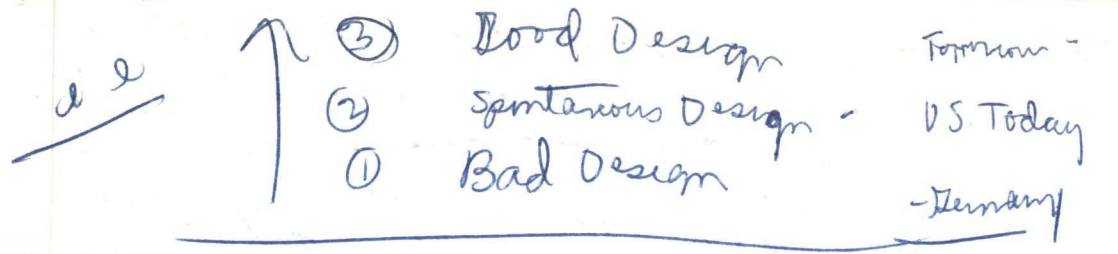 ③ Good Design Tomorrow -
② Spontaneous Design - US Today
① Bad Design
- Germany